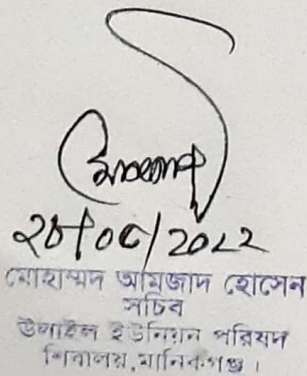 ২৮/০৫/2022
মোহাম্মদ আমজাদ হোসেন
সচিব
উলাইল ইউনিয়ন পরিষদ
শিবালয়, মানিকগঞ্জ।